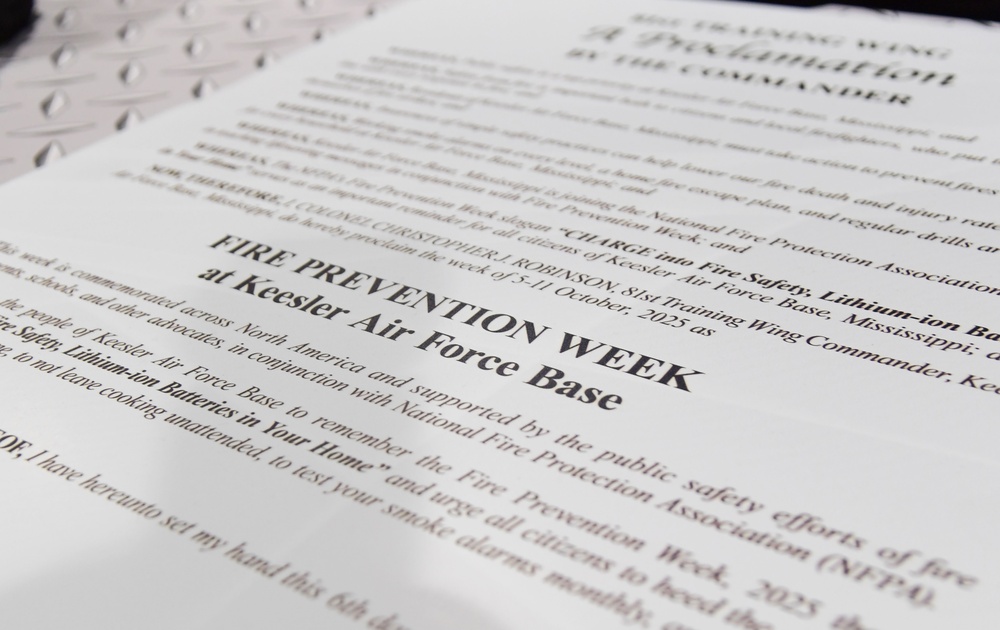 TRAINING WING
A Proclamation
BY THE COMMANDER
Air Force Base, Mississippi, and
and local firefighters, who put
Air Force Base, Mississippi, must take action to prevent fires
safety practices can help lower our fire death and injury
a home fire escape plan, and regular drills
Force Base, Mississippi, and
WHEREAS, Keesler Air Force Base, Mississippi is joining the National Fire Protection Association
messages in conjunction with Fire Prevention Week; and
WHEREAS, The NFPA's Fire Prevention Week slogan "CHARGE into Fire Safety, Lithium-ion
in Your Home" serves as an important reminder for all citizens of Keesler Air Force Base, Mississippi;
NOW, THEREFORE, I, COLONEL CHRISTOPHER J. ROBINSON, 81st Training Wing Commander,
Air Force Base, Mississippi, do hereby proclaim the week of 5-11 October, 2025 as
FIRE PREVENTION WEEK
at Keesler Air Force Base
This week is commemorated across North America and supported by the public safety efforts of fire
schools, and other advocates, in conjunction with National Fire Protection Association (NFPA).
the people of Keesler Air Force Base to remember the Fire Prevention Week, 2025
Safety, Lithium-ion Batteries in Your Home" and urge all citizens to heed the
to not leave cooking unattended, to test your smoke alarms monthly,
I have hereunto set my hand this 6th